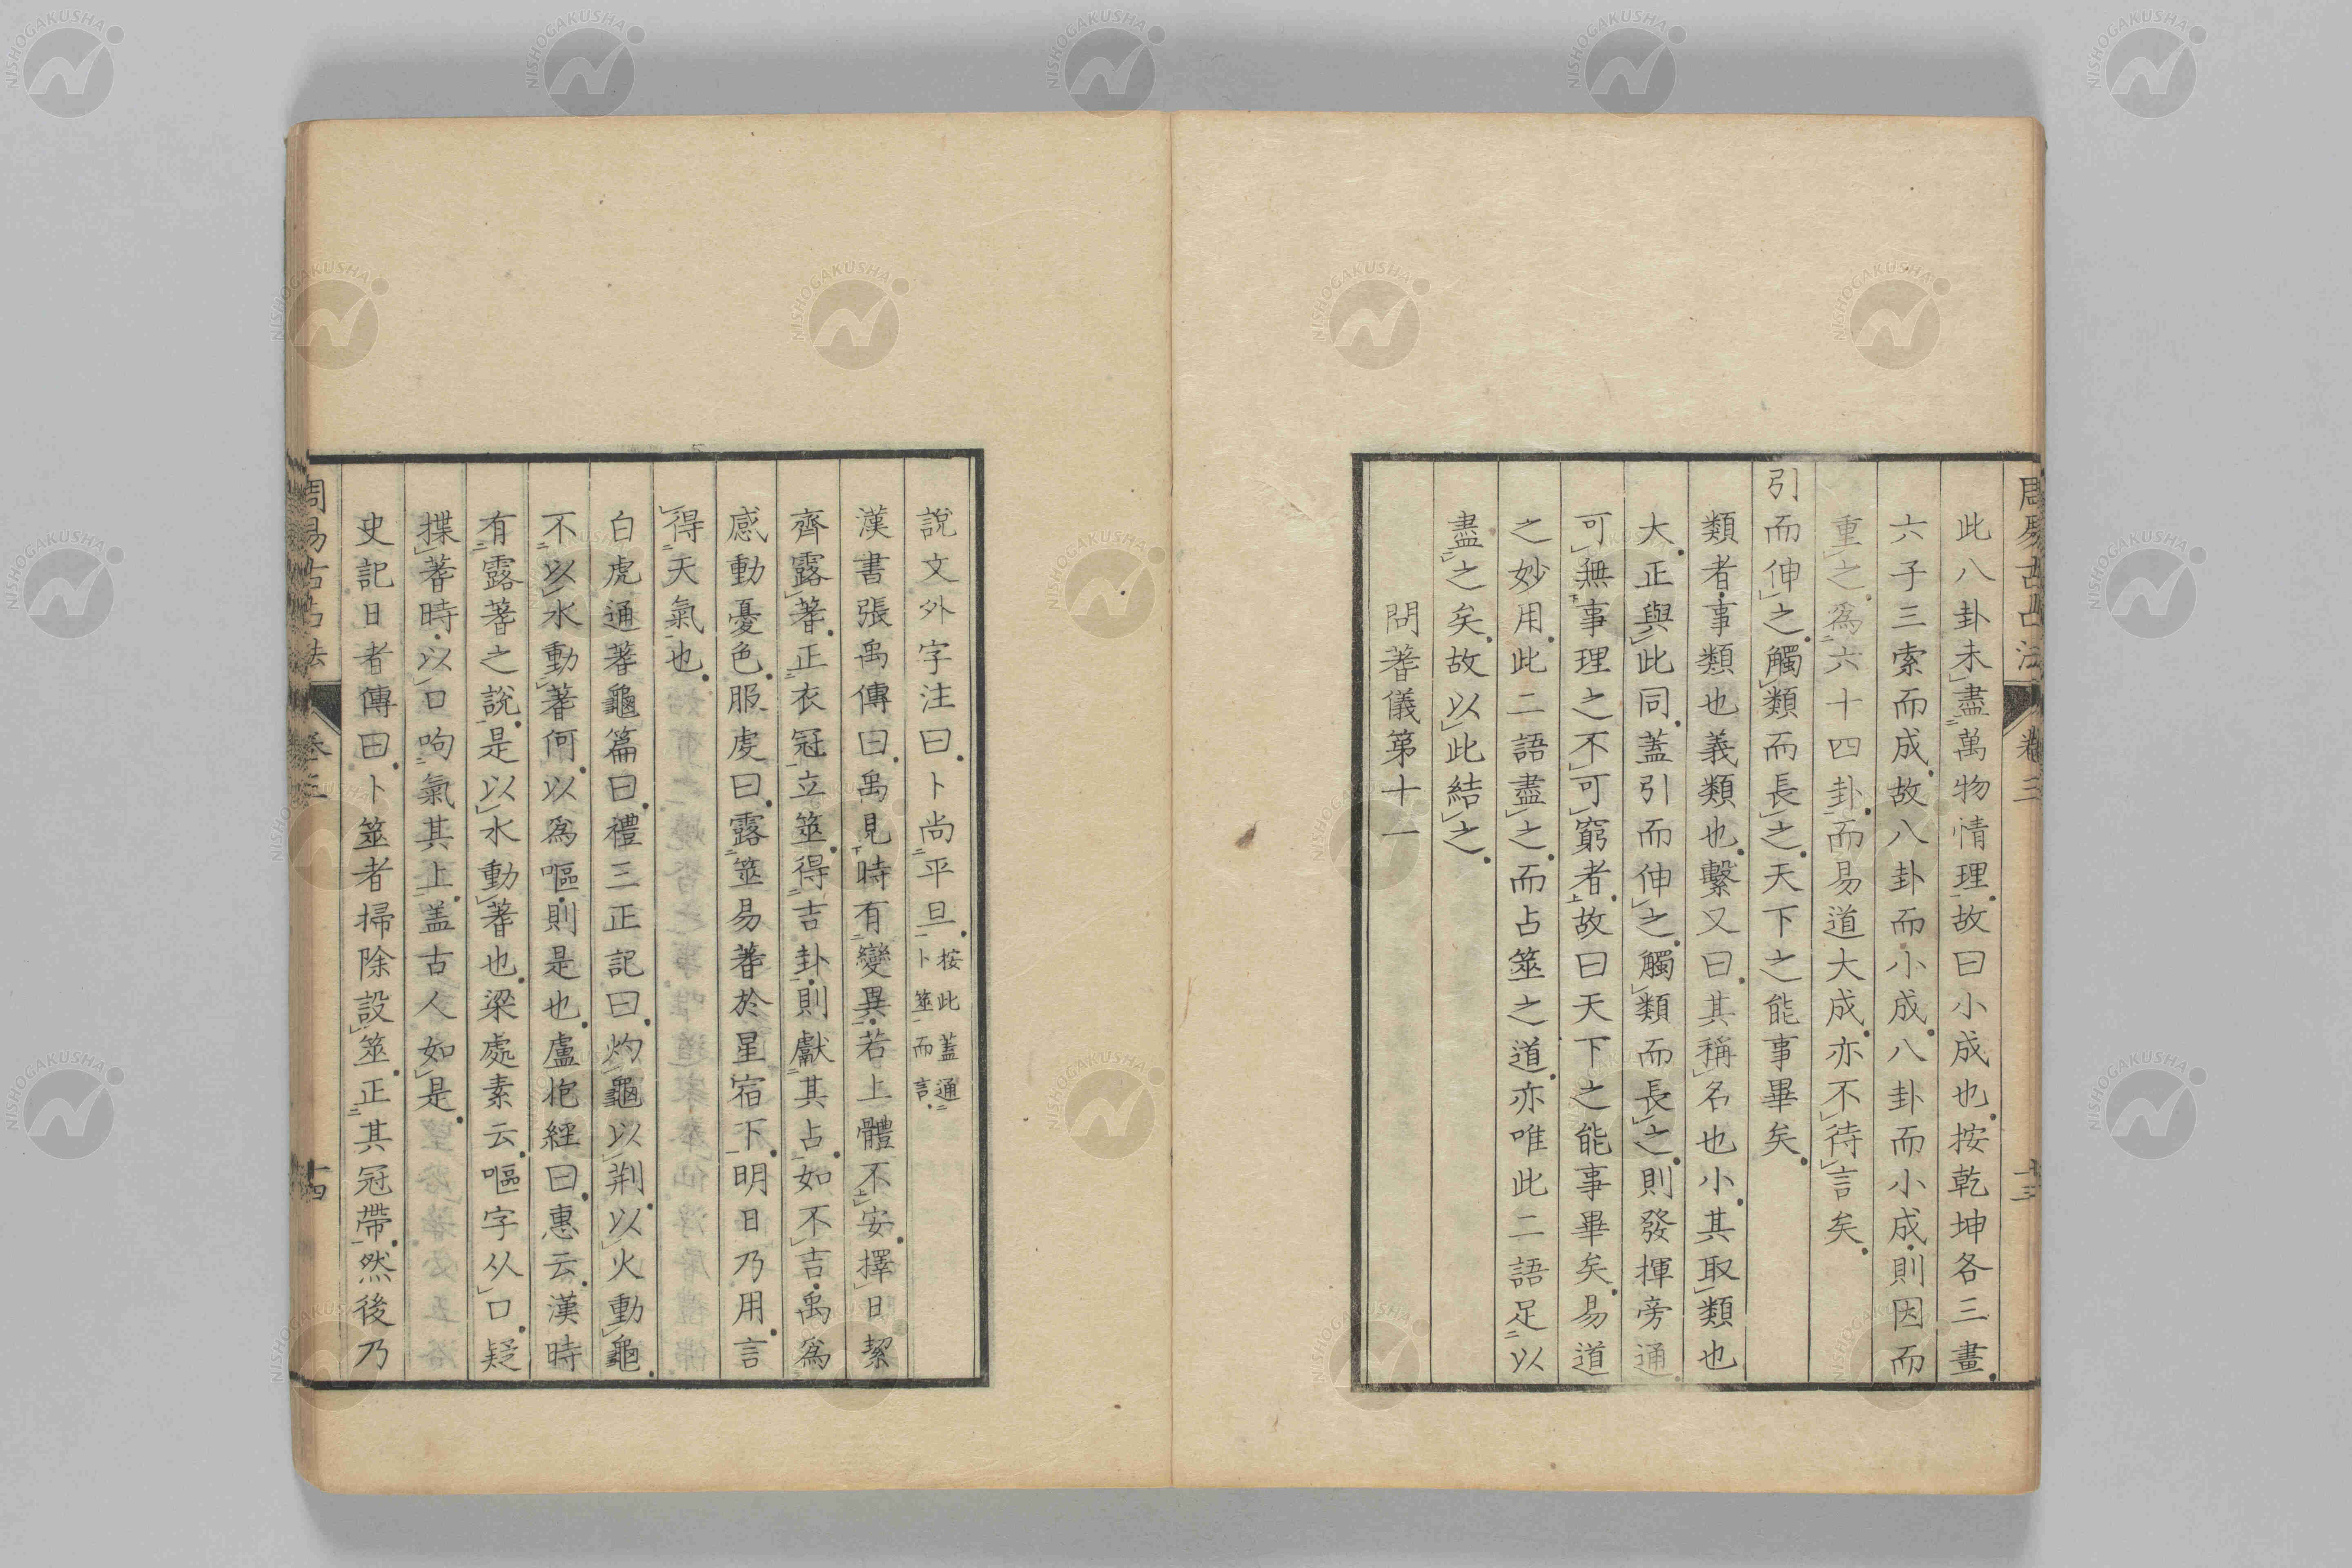 周易古占法 卷三 十三
此八卦未盡萬物情理故曰小成也按乾坤各三畫
六子三索而成故八卦而小成八卦而小成則因而
重之為六十四卦而易道大成亦不待言矣
引而伸之觸類而長之天下之能事畢矣
類者事類也義類也繫又曰其稱名也小其取類也
大正與此同蓋引而伸之觸類而長之則發揮旁通
可無事理之不可窮者故曰天下之能事畢矣易道
之妙用此二語盡之而占筮之道亦唯此二語足以
盡之矣故以此結之
問蓍儀第十一
說文外字注曰卜尚平旦按此蓋通卜筮而言
漢書張禹傳曰禹見時有變異若上體不安擇日絜
齊露蓍正衣冠立筮得吉卦則獻其占如不吉禹為
感動憂色服虔曰露筮易蓍於星宿下明日乃用言
得天氣也
白虎通蓍龜篇曰禮三正記曰灼龜以荆以火動龜
不以水動蓍何以為嘔則是也盧抱經曰惠云漢時
有露蓍之說是以水動蓍也梁處素云嘔字从口疑
揲蓍時以口呴氣其上蓋古人如是
史記日者傳曰卜筮者掃除設筮正其冠帶然後乃
周易古占法 卷三 十四
NISHOGAKUSHA